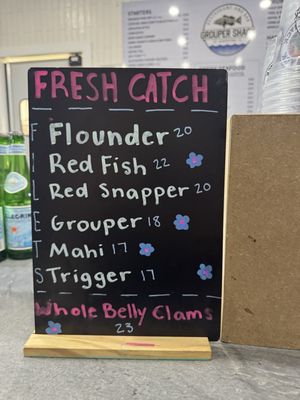 GROUPER SHA
FRESH CATCH
FILETS
Flounder 20
Red Fish 22
Red Snapper 20
Grouper 18
Mahi 17
Trigger 17
Whole Belly Clams
23